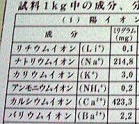 試料1kg中の成分、分量
(1)陽イオン
ミリグラム
(mg)
リチウムイオン (Li⁺) 0,1
ナトリウムイオン (Na⁺) 214,8
カリウムイオン (K⁺) 3,0
アンモニウムイオン (NH₄⁺) 0,2
カルシウムイオン (Ca²⁺) 423,3
バリウムイオン (Ba²⁺) 2,2